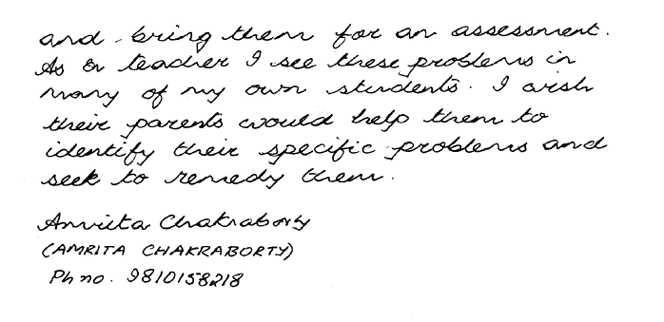 and bring them for an assessment.
As a teacher I see these problems in
many of my own students. I wish
their parents would help them to
identify their specific problems and
seek to remedy them.
Amrita Chakraborty
(AMRITA CHAKRABORTY)
Ph no. 9810158218